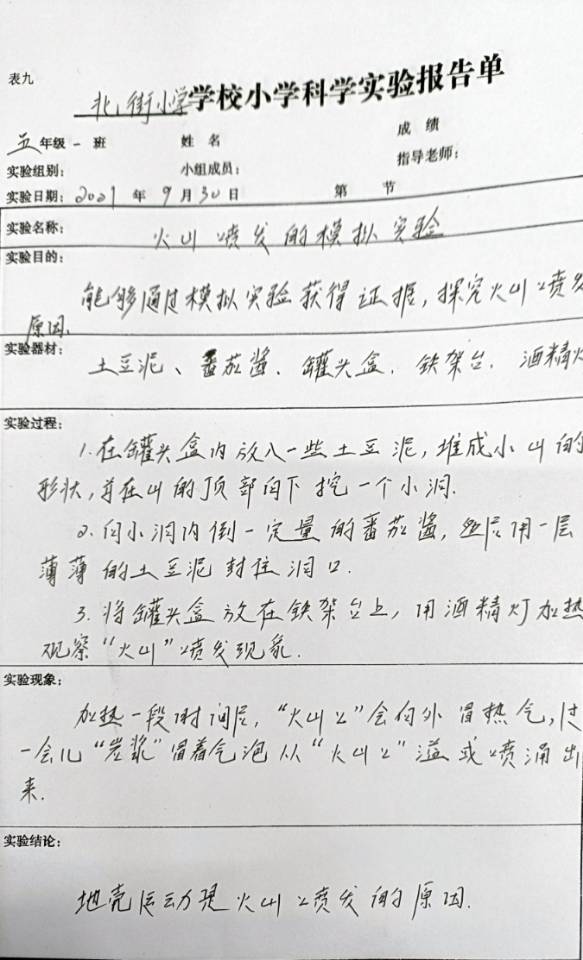 表九
北街小学学校小学科学实验报告单
五年级一班 姓名 成绩
实验组别： 小组成员： 指导老师：
实验日期：2021年9月30日 第 节
实验名称： 火山喷发的模拟实验
实验目的：
能够通过模拟实验获得证据，探究火山喷发
原因.
实验器材： 土豆泥、番茄酱、罐头盒、铁架台、酒精灯
实验过程：
1.在罐头盒内放入一些土豆泥，堆成小山的
形状，并在山的顶部向下挖一个小洞.
2.向小洞内倒一定量的番茄酱，然后用一层
薄薄的土豆泥封住洞口.
3.将罐头盒放在铁架台上，用酒精灯加热
观察“火山”喷发现象.
实验现象：
加热一段时间后，“火山口”会向外冒热气，过
一会儿“岩浆”冒着气泡从“火山口”溢或喷涌出
来.
实验结论：
地壳运动是火山喷发的原因.